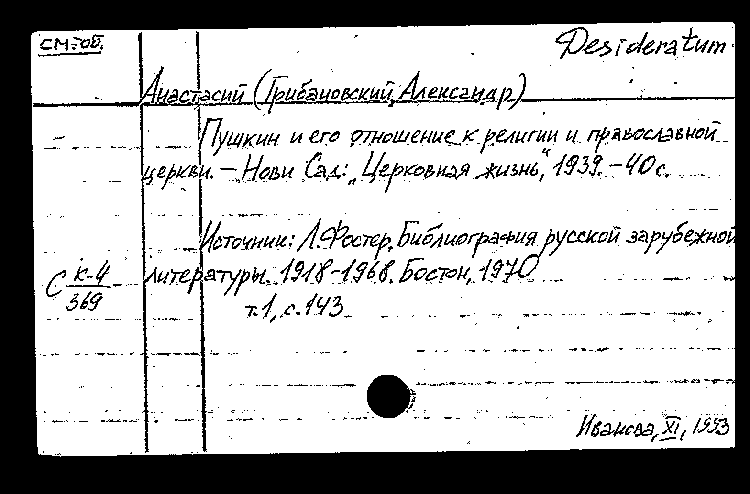 см.-об.
Desideratum
Анастасий (Грибановский, Александр)
Пушкин и его отношение к религии и православной
церкви. – Нови Сад: „Церковная жизнь“, 1939. – 40 с.
Источник: Л. Фостер. Библиография русской зарубежной
литературы. 1918–1968. Бостон, 1970
т. 1, с. 143
С к-4
369
Иванова, XI, 1993